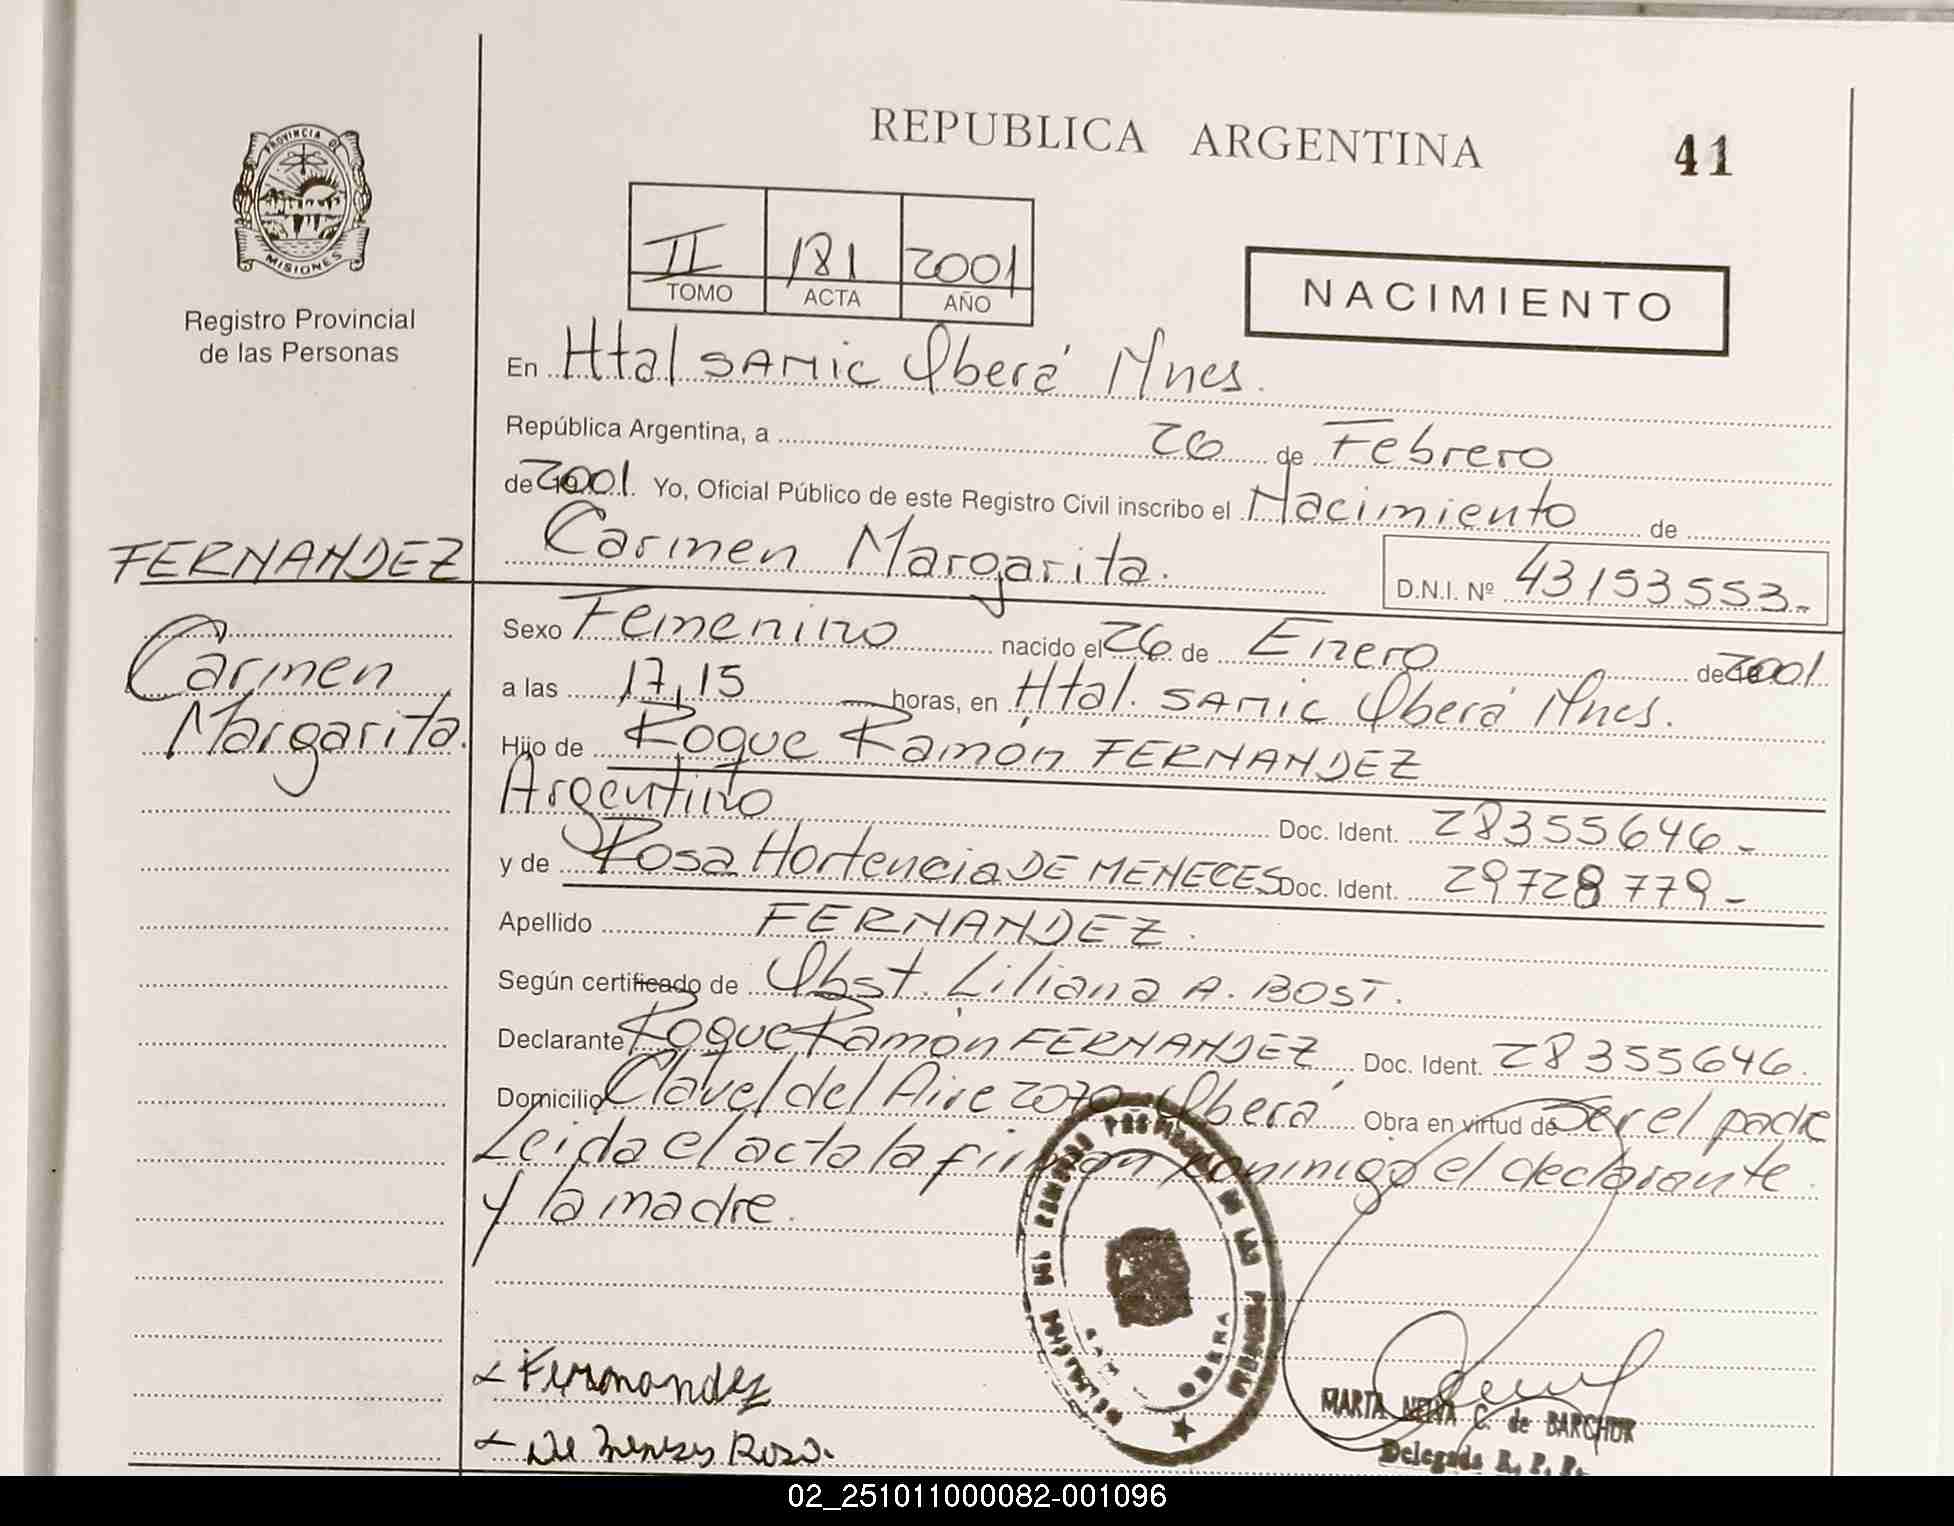 REPUBLICA ARGENTINA
41
PROVINCIA DE
MISIONES
Registro Provincial
de las Personas
II 181 2001
TOMO ACTA AÑO
NACIMIENTO
En Htal SAMIC Oberá Mnes.
República Argentina, a 26 de Febrero
de 2001. Yo, Oficial Público de este Registro Civil inscribo el Nacimiento de
Carmen Margarita. D.N.I. Nº 43153553.-
FERNANDEZ
Carmen
Margarita.
Sexo Femenino nacido el 26 de Enero de 2001
a las 17,15 horas, en Htal. SAMIC Oberá Mnes.
Hijo de Roque Ramón FERNANDEZ
Argentino Doc. Ident. 28355646-
y de Rosa Hortencia DE MENECES Doc. Ident. 29728779-
Apellido FERNANDEZ.
Según certificado de Obst. Liliana A. BOST.
Declarante Roque Ramón FERNANDEZ Doc. Ident. 28355646.
Domicilio Clavel del Aire 2070 Oberá Obra en virtud de Ser el padre
Leida el acta la firman conmigo el declarante
y la madre.
DELEGACION DEL REGISTRO PROVINCIAL DE LAS PERSONAS
OBERA
Fernandez
De Meneses Rosa.
MARTA NELVA C. de BARCHUK
Delegada R. P. P.
02_251011000082-001096